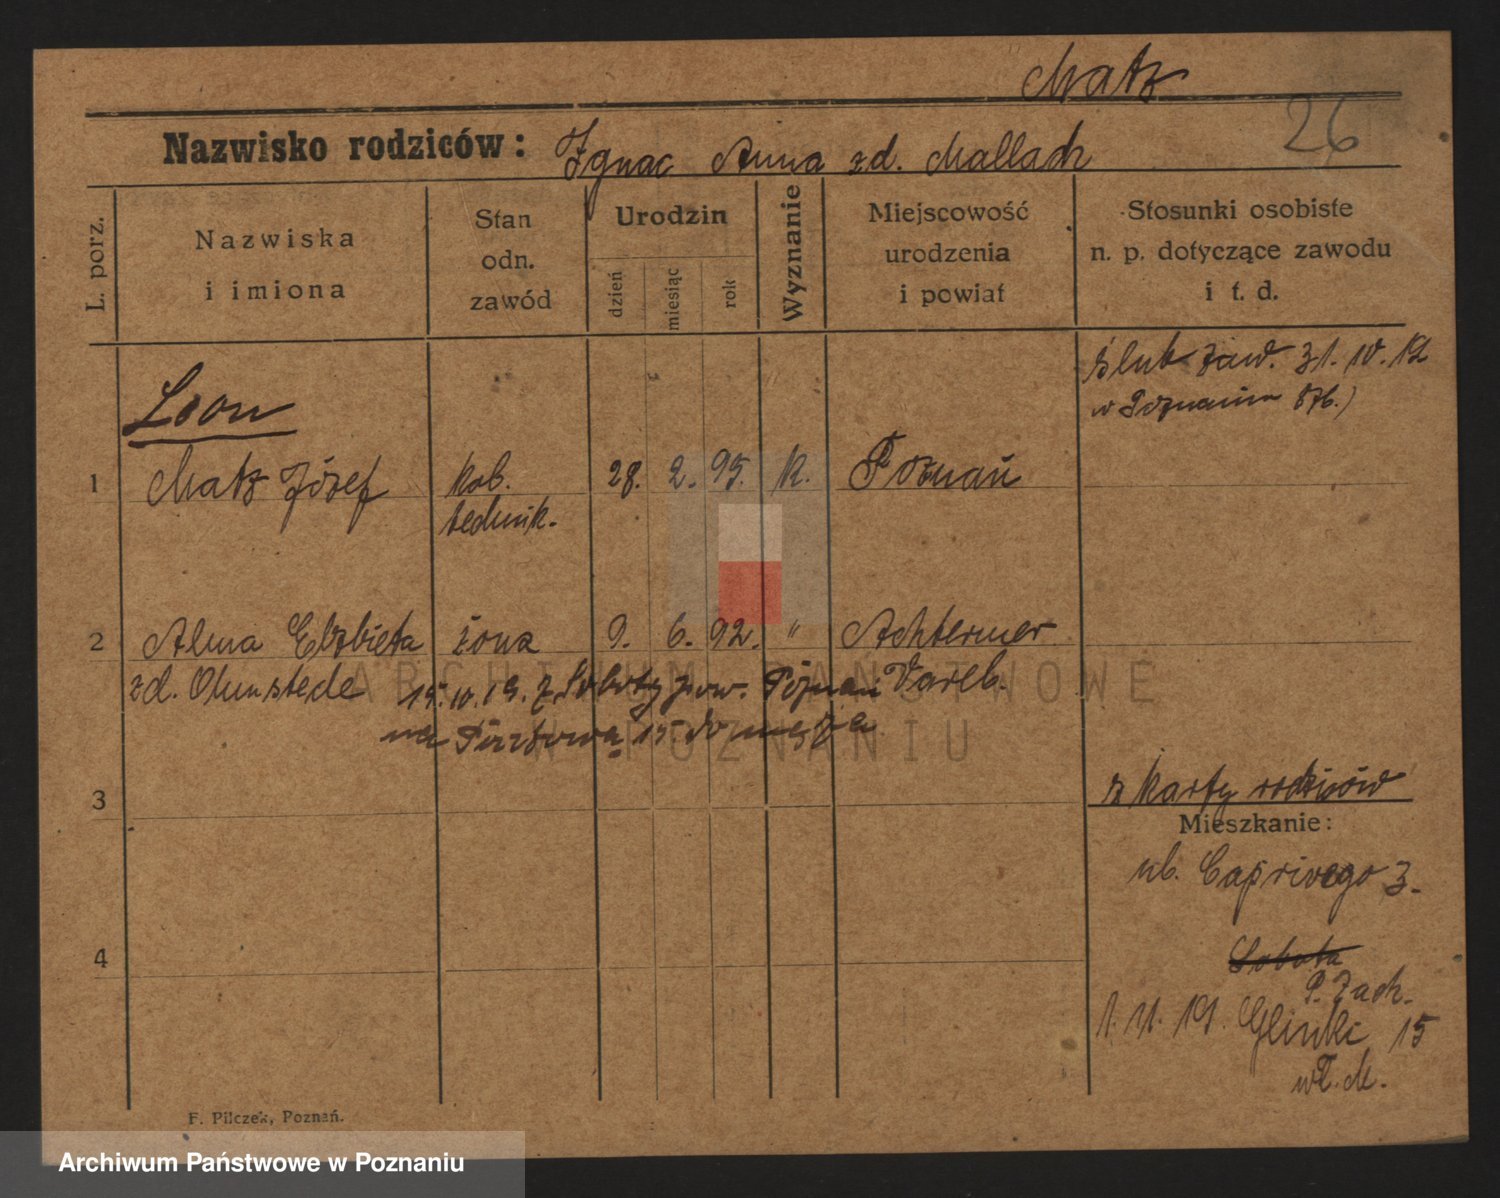 Matz
26
Nazwisko rodziców: Ignac Anna zd. Mallach
L. porz.
Nazwiska i imiona
Stan odn. zawód
Urodzin
dzień
miesiąc
rok
Wyznanie
Miejscowość urodzenia i powiat
Stosunki osobiste n. p. dotyczące zawodu i t. d.
ślub zaw. 31. 10. 12
w Poznaniu
Leon
1 Matz Józef kob. 28. 2. 95. k. Poznań
technik.
2 Alma Elżbieta żona 9. 6. 92. " Achtermer
zd. Ohmstede
Vareb.
15. 10. 19. z Soboty pow. Poznań
na 15 do męża
3
z karty rodziców
Mieszkanie:
ul. Caprivego 3.
4
Sobota
P. Zach.
1. 11. 19. Glinki 15
wł. M.
F. Pilczek, Poznań.
ARCHIWUM PAŃSTWOWE
W POZNANIU
Archiwum Państwowe w Poznaniu